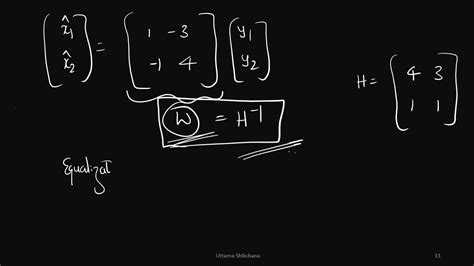 (x̂₁ x̂₂) = (1 -3 -1 4) (y₁ y₂)
H = (4 3 1 1)
W = H⁻¹
Equalizat
Uttama Shikshana
11